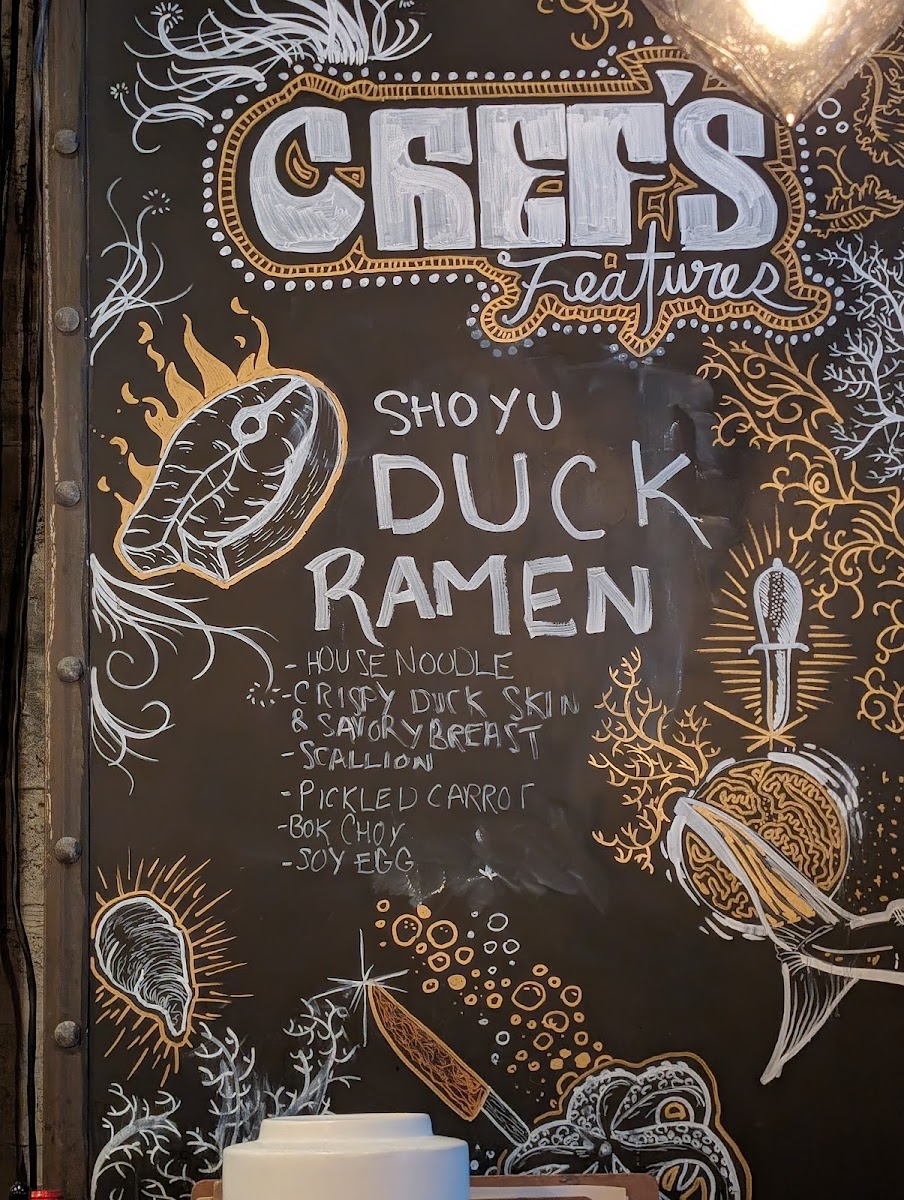 CHEF'S
Features
SHOYU
DUCK
RAMEN
- HOUSE NOODLE
- CRISPY DUCK SKIN
& SAVORY BREAST
- SCALLION
- PICKLED CARROT
- BOK CHOY
- SOY EGG